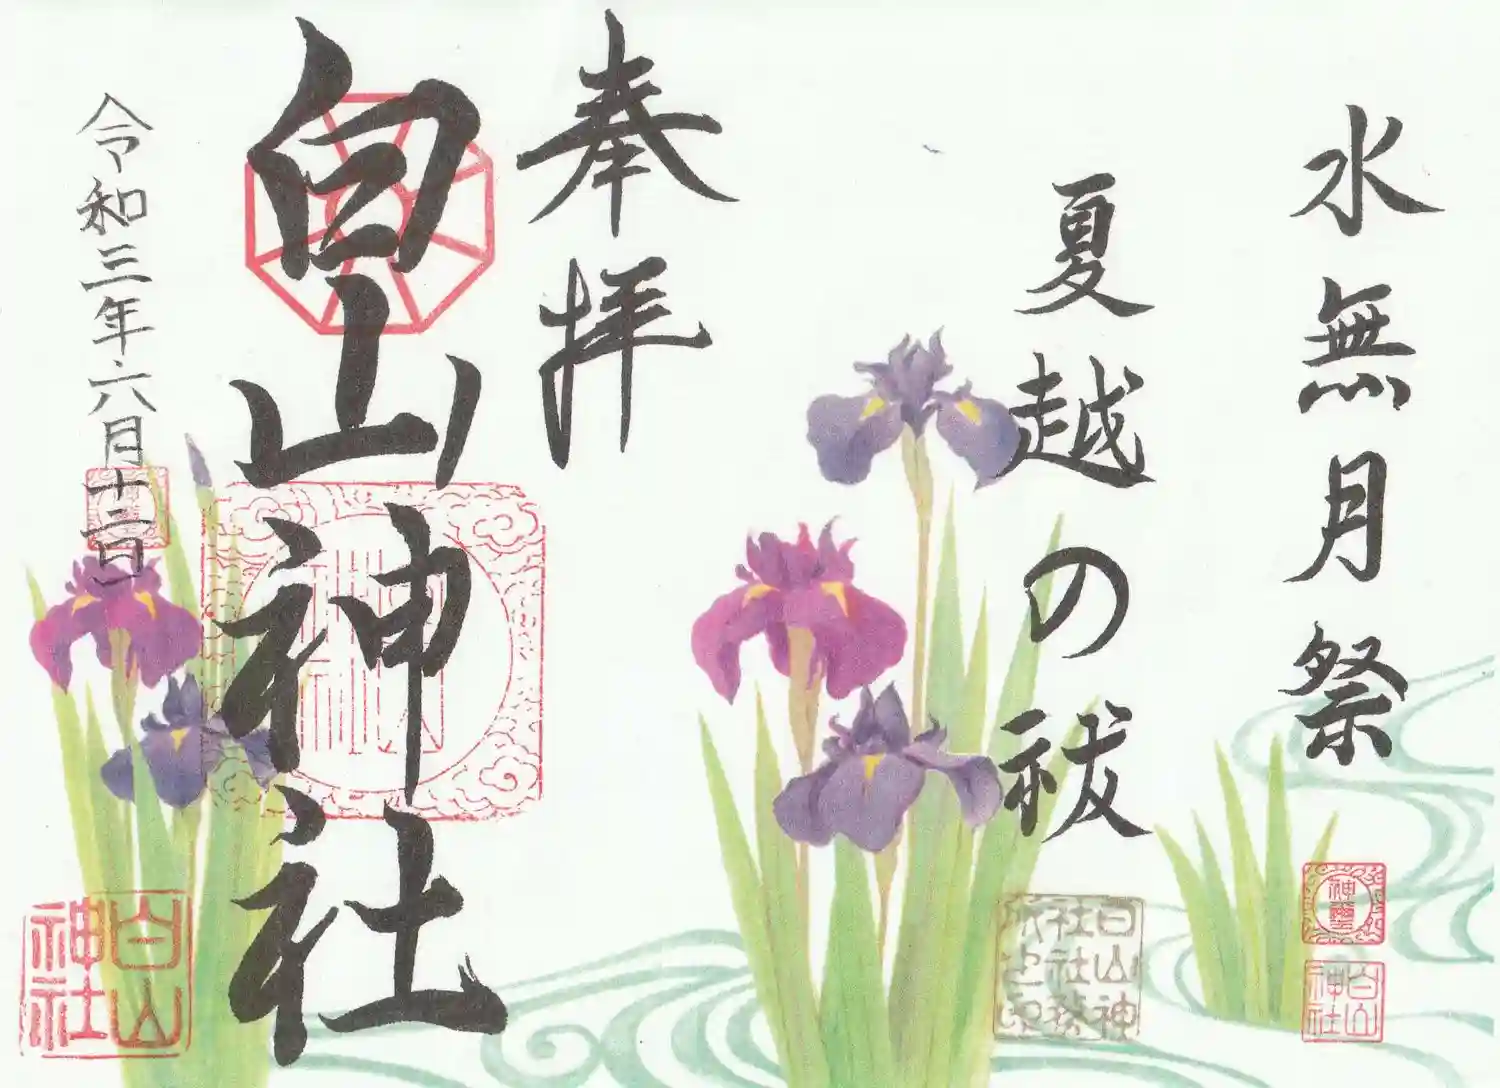 水無月祭
夏越の祓
奉拝
白山神社
令和三年六月十二日
神璽
白山神社
白山神社社務所之印
白山神社